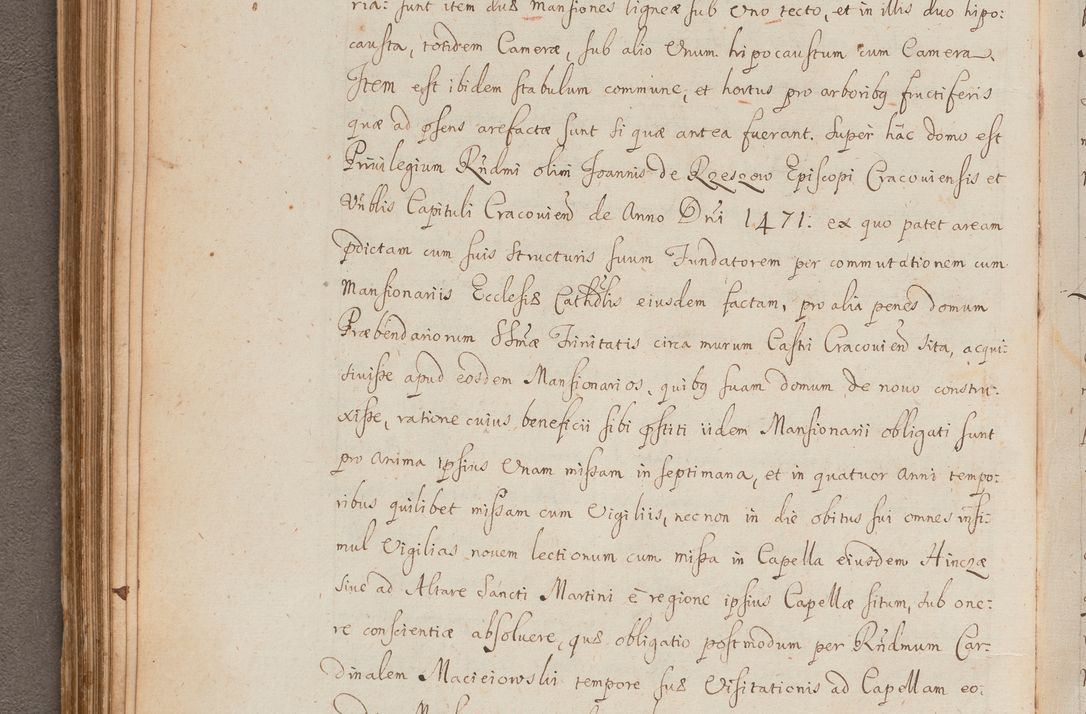 ria: sunt item duæ Mansiones ligneæ sub uno tecto, et in illis duo hipo:
causta, totidem Cameræ, sub alio Unum hipocaustum cum Camera.
Item est ibidem stabulum commune, et hortus pro arboribq fructiferis
quæ ad pñsens arefactæ sunt si quæ antea fuerant. Super hac domo est
Privilegium Rñdmi olim Joannis de Rzeszow Episcopi Cracoviensis et
Vñblis Capituli Cracovien̄ de Anno Dñi 1471: ex quo patet aream
pdictam cum suis structuris suum Fundatorem per commutationem cum
Mansionariis Ecclesiæ Cathđlis eiusdem factam, pro alia penes domum
Præbendariorum SSmæ Trinitatis circa murum Castri Cracovien̄ sita, acqui:
sivisse apud eosdem Mansionarios, quibq suam domum de novo constru:
xisse, ratione cuius beneficii sibi pr̄stiti iidem Mansionarii obligati sunt
pro anima ipsius Unam missam in septimana, et in quatuor Anni tempo:
ribus quilibet missam cum Vigiliis, nec non in die obitus sui omnes insi:
mul Vigilias novem lectionum cum missa in Capella eiusdem Hinczæ
sive ad Altare Sancti Martini ē regione ipsius Capellæ situm, sub one:
re conscientiæ absolvere, quæ obligatio postmodum per Rñdmum Car:
dinalem Macieiowski tempore suæ Visitationis ad Capellam eo: